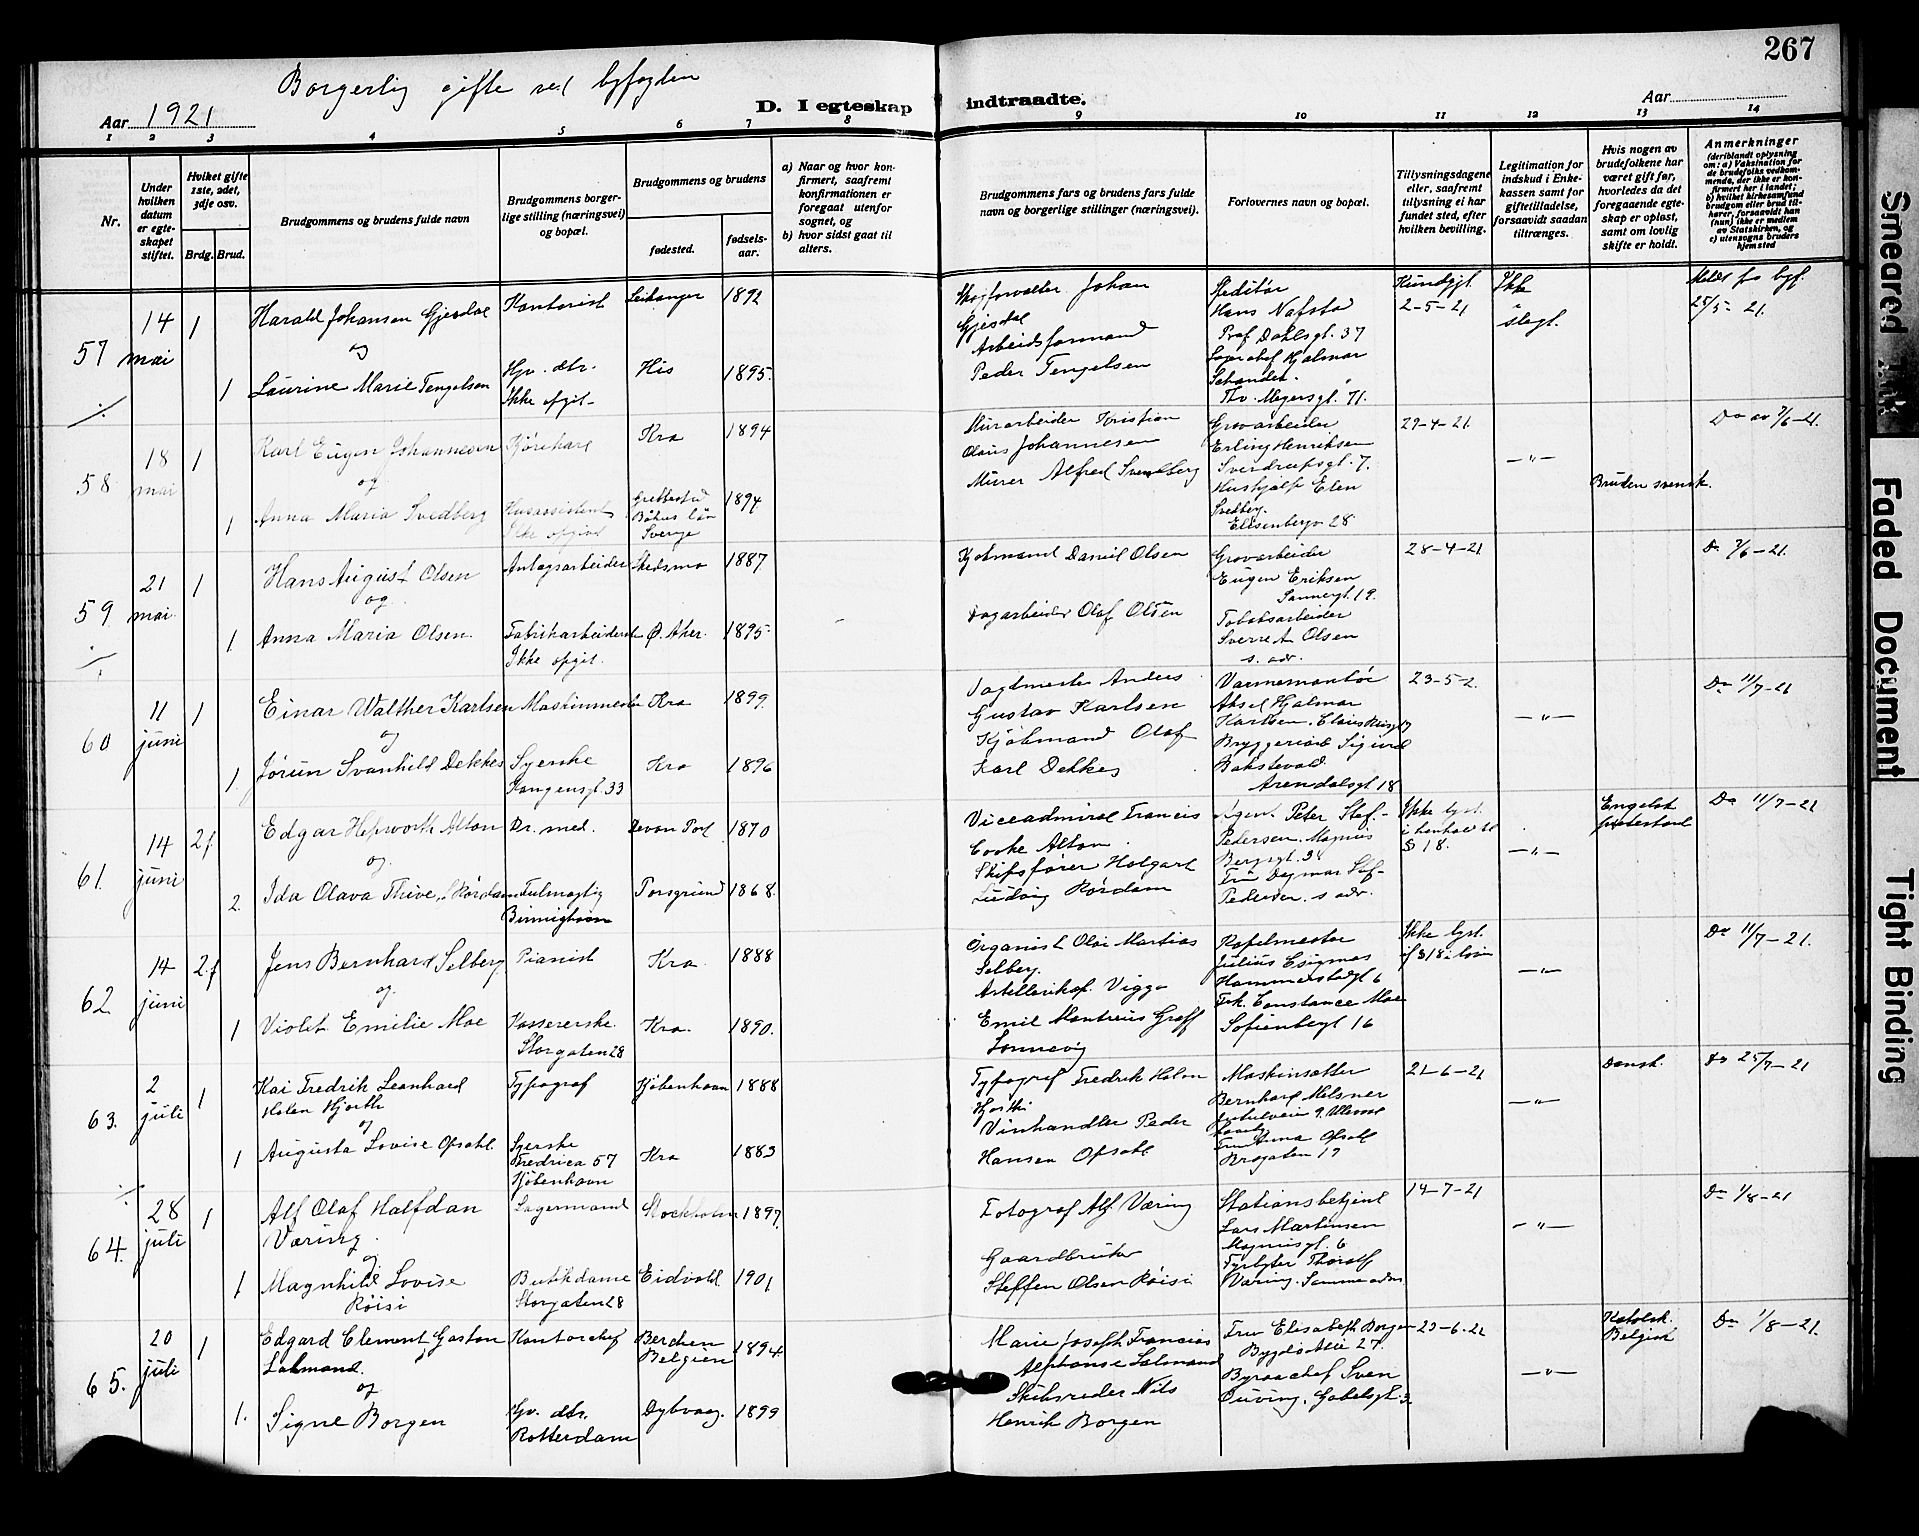 267
Borgerlig gifte ved byfogden
Aar 1921
D. I egteskap indtraadte.
Aar
1 2 3 4 5 6 7 8 9 10 11 12 13 14
Nr.
Under hvilken datum er egteskapet stiftet.
Hvilket gifte 1ste, 2det, 3dje osv.
Brdg. Brud.
Brudgommens og brudens fulde navn
Brudgommens borgerlige stilling (næringsvei) og bopæl.
Brudgommens og brudens
fødested.
fødselsaar.
a) Naar og hvor konfirmert, saafremt konfirmationen er foregaat utenfor sognet, og
b) hvor sidst gaat til alters.
Brudgommens fars og brudens fars fulde navn og borgerlige stillinger (næringsvei).
Forlovernes navn og bopæl.
Tillysningsdagene eller, saafremt tillysning ei har fundet sted, efter hvilken bevilling.
Legitimation for indskud i Enkekassen samt for giftetilladelse, forsaavidt saadan tiltrænges.
Hvis nogen av brudefolkene har været gift før, hvorledes da det foregaaende egteskap er opløst, samt om lovlig skifte er holdt.
Anmerkninger
(deriblandt oplysning om: a) Vaksination for de brudefolks vedkommende, der ikke er konfirmert her i landet; b) hvilket kirkesamfund brudgom eller brud tilhører, forsaavidt han (hun) ikke er medlem av Statskirken, og c) utensogns bruders hjemsted
57 14 mai 1 Harald Johansen Gjesdal Kontorist Leikanger 1892
og
1 Laurine Marie Tengelsen Hjv. dtr. His 1895
Ikke opgit
Skogforvalter Johan Gjesdal
Arbeidsformand
Peder Tengelsen
Speditør
Hans Nafstad
Prof Dahlsgt. 37
Hjalmar
Th. Meyersgt. 71.
Kundgjt
2-5-21
Ikke
slegt.
Meldt fra byf.
25/5-21.
58 18 mai 1 Karl Eugen Johannesen Kjørekarl Kra 1894
og
1 Anna Maria Svedberg Husassistent Grebbestad 1894
Ikke opgivd Bohus län
Sverge
Murarbeider Kristian
Olaus Johannesen
Murer Alfred Svedberg
Grovarbeider
Erling Henriksen
Sverdrupsgt. 7.
Hushjælp Elen
Svedberg.
Elisenbergv 28
29-4-21
-"-
Bruden svensk.
Do av 7/6-21.
59 21 mai 1 Hans August Olsen Anlægsarbeider Skedsmo 1887
og
1 Anna Maria Olsen Fabrikarbeiderske Ø. Aker. 1895
Ikke opgit.
Kjøbmand Daniel Olsen
Dagarbeider Olaf Olsen
Grovarbeider
Eugen Eriksen
Sannergt. 19.
Tobaksarbeider
Sverre A. Olsen
s. adr.
28-4-21
Do 7/6-21.
60 11 juni 1 Einar Walther Karlsen Maskinmester Kra 1899
og
1. Jørun Svanhild Dekkes Syerske Kra 1896
Kongensgt. 33
Vagtmester Anders
Gustav Karlsen
Kjøbmand Olaf
Karl Dekkes
Varmemontør
Aksel Hjalmar
Karlsen.
Bryggeriarb Sigurd
Bakstevold
Arendalsgt 18
23-5-2.
-"-
Do 11/7-21
61. 14 juni 2 f Edgar Hepworth Alton Dr. med. Devon Port 1870
og
2. Ida Olava Thive, f. Rørdam Fulmagtig Porsgrund 1868.
Birmigham
Viceadmiral Francis
Cooke Alton
Skipsfører Holgart
Ludvig Rørdam
Agent Peter Stef.-
Pedersen. Magnus
Bergsgt. 34
Fru Dagmar Stef-
Pedersen. s adr.
Ikke lyst.
i henhold til
§ 18.
-"-
Engelsk
protestant
Do 11/7-21
62. 14 juni 2 f Jens Bernhard Selberg Pianist Kra. 1888
og
1 Violet Emilie Moe Kassererske. Kra. 1890.
Storgaten 28
Organist Olai Martias
Selberg.
Artillerikap. Viggo
Emil Montreius Graff
Sonnevig
Kapelmester
Julius Esigmos
Hammerstadgt 6
Frk. Constance Moe
Sofienbergt 16
Ikke lyst.
if § 18 i lov
-"-
Do 11/7-21.
63. 2 juli 1 Kai Fredrik Leonhard Typograf Kjøbenhavn 1888
Holm Hjorth
og
1 Augusta Lovise Opsahl. Syerske Kra 1883
57
Kjøbenhavn
Typograf Fredrik Holm
Hjorth
Vinhandler Peder
Hansen Opsahl
Maskinsætter
Bernhard Melsner
Fru Anna Opsahl
Brogaten 17
21-6-21
-"-
Dansk.
Do 25/7-21
64. 28 juli 1 Alf Olaf Halfdan Lagermand Stockholm 1897.
Væring.
og
1 Magnhild Lovise Butikdame Eidsvold 1901
Røisi Storgaten 28
Fotograf Alf Væring
Gaardbruker
Steffen Olsen Røisi
Stationsbetjent
Lars Martinsen
Magnusgt. 6
Fyrbøter Thoralf
Væring. Samme adr.
14-7-21
-"-
Do 1/8-21
65. 20 juli 1 Edgard Clement Gaston Kontorchef Berchen 1894.
Lalmand. Belgien
og
1. Signe Borgen Hjv. dtr. Dybvaag. 1899
Rotterdam
Marie Joseph Francias
Alphonse Lalmand
Skibsreder Nils
Henrik Borgen
Fru Elisabeth Borgen
Bygdø Alle 27.
Byraachef Sven
Gabelsgt. 3
23-6-21
-"-
Katolsk.
Belgisk
Do 1/8-21.
Smeared Ink
Faded Document
Tight Binding